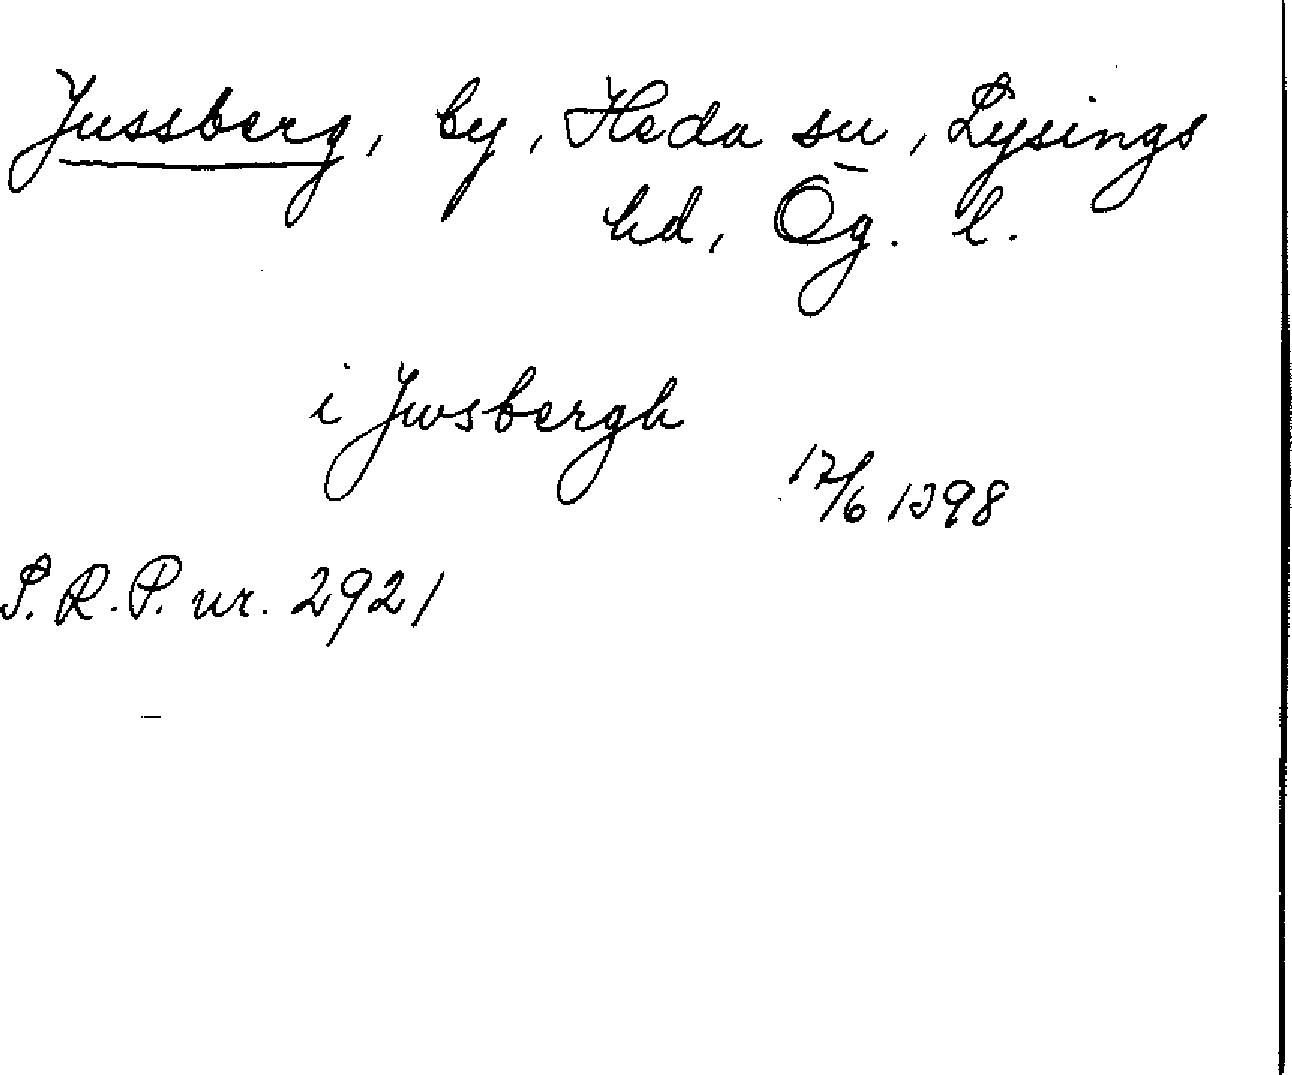 Jussberg, by, Heda sn, Lysings
hd, Ög. l.
i Jwsbergh
17/6 1398
S. R. P. nr. 2921